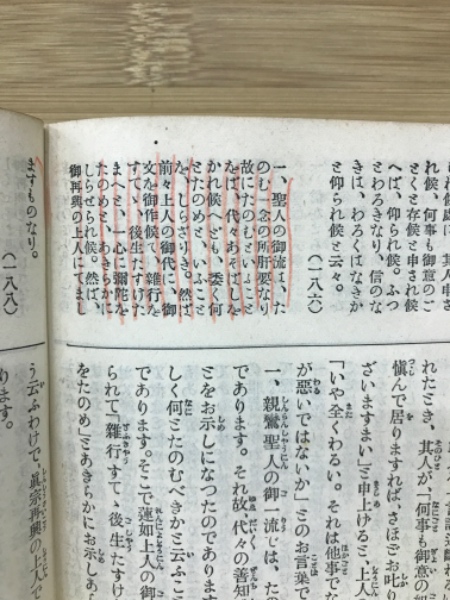 れ候處に、其人申さ
れ候、何事も御意のご
とくと存候と申され候
へば、仰られ候。ふつ
とわろきなり、信のな
きは、わろくはなきか
と仰られ候と云々。
(一八六)
一、聖人の御流は、たの
のむ一念の所肝要なり
故にたのむといふこと
をば、代々あそばしを
かれ候へども、委く何
とたのめと、いふこと
を、しらざりき。然ば
前々上人の御代に、御
文を御作候て、雜行を
すてゝ、後生たすけた
まへと、一心に彌陀を
たのめと、あきらかに
しらせられ候。然ば、
御再興の上人にてまし
ますものなり。
(一八八)
れたとき、其人が、「何事も御意の
愼んで居りますれば、さほどお叱り
ざいますまい」と申上けると、上人
「いや全くわるい。それは他事でな
が惡いではないか」とのお言葉で
一、親鸞聖人の御一流では、たの
であります。それ故、代々の善知
とをお示しになつたのであります
しく何とたのむべきかと云ふこ
であります。そこで蓮如上人の御
られて「雜行すて、後生たすけ
をたのめ」とあきらかにお示しあ
う云ふわけで、眞宗再興の上人で
ります。